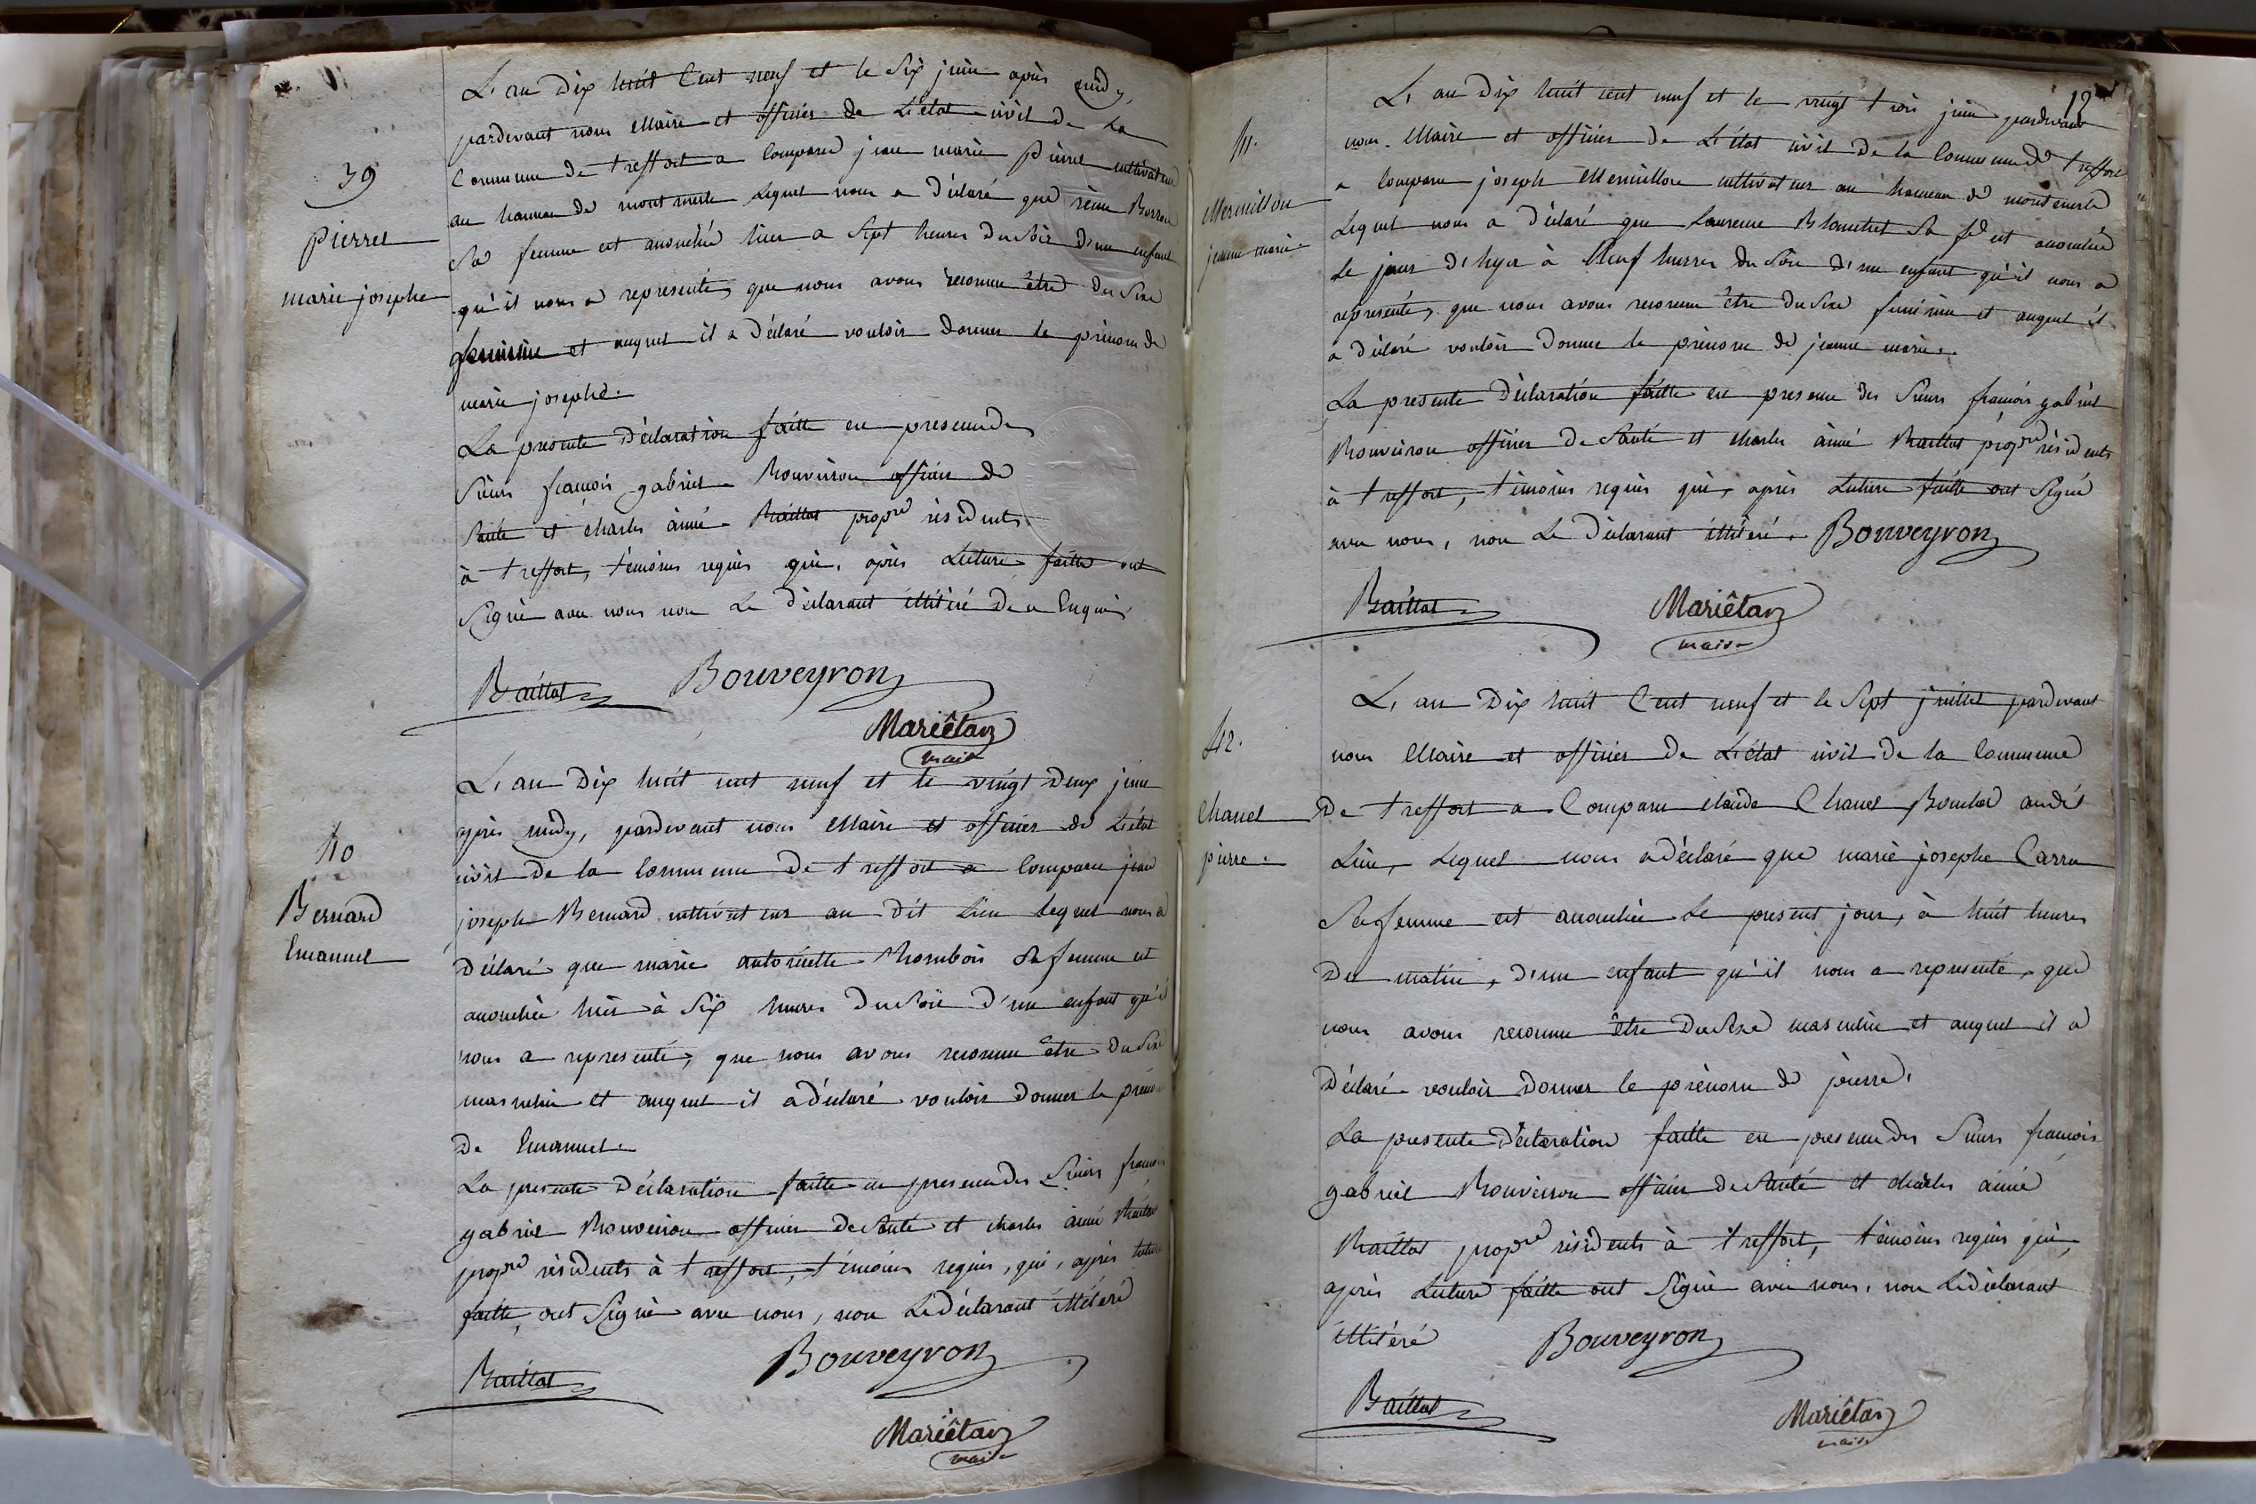 39
Pierret
marie josephe
L'an dix huit Cent neuf et le Six juin après midy,
pardevant nous Maire et officier de L'état civil de La
Commune de treffort a Comparu jean marie Pierret cultivateur
au hameau de mont merle Lequel nous a déclaré que reine
Sa femme est accouchée hier a Sept heures du Soir d'un enfant
qu'il nous a representé, que nous avons reconnu être du Sexe
feminin et auquel il a déclaré vouloir donner le prénom de
marie josephe.
La presente déclaration faitte en presence des
Sieurs françois gabriel Bouveiron officier de
Santé et charles aimé Baillat propre residents
à treffort, témoins requis qui, après Lecture faitte ont
Signé avec nous non Le déclarant illiteré de ce Enquis
Baillat Bouveyron
Mariêtan
maire
40
Bernard
Emanuel
L'an dix huit cent neuf et le vingt deux juin
après midy, pardevant nous Maire et officier de L'état
civil de la Commune de treffort a Comparu jean
joseph Bernard cultivateur au dit Lieu Lequel nous a
déclaré que marie antoinette Bombois Sa femme est
accouchée hier à Six heures du Soir d'un enfant qu'il
nous a representé, que nous avons reconnu être du Sexe
masculin et auquel il a déclaré vouloir donner le prénom
de Emanuel.
La presente déclaration faitte en presence des Sieurs françois
gabriel Bouveiron officier de Santé et charles aimé Baillat
propre résidents à treffort, témoins requis, qui, après lecture
faitte, ont Signé avec nous, non Le déclarant illiteré
Baillat Bouveyron
Mariêtan
maire
12
41.
Mermillon
jeanne marie
L'an dix huit cent neuf et le vingt trois juin pardevant
nous Maire et officier de L'état civil de la Commune de treffort
a Comparu joseph Mermillon cultivateur au hameau de montmerle
Lequel nous a déclaré que Laurence Blanchet Sa fe est accouchée
Le jour d'hyer à Neuf heures du Soir d'un enfant qu'il nous a
representé, que nous avons reconnu être du Sexe feminin et auquel il
a déclaré vouloir donner le prénom de jeanne marie.
La presente déclaration faitte en presence des Sieurs françois gabriel
Bouveiron officier de Santé et charles aimé Baillat propre résidents
à treffort, témoins requis qui, après Lecture faitte ont Signé
avec nous, non Le déclarant illiteré. Bouveyron
Baillat Mariêtan
maire
42.
Chanel
pierre.
L'an dix huit Cent neuf et le Sept juillet pardevant
nous Maire et officier de L'état civil de la Commune
de treffort a Comparu claude Chanel audit
Lieu, Lequel nous a déclaré que marie josephe Carra
Sa femme est accouchée Le present jour, à huit heures
du matin, d'un enfant qu'il nous a representé, que
nous avons reconnu être du Sexe masculin et auquel il a
déclaré vouloir donner le prénom de pierre.
La presente déclaration faitte en presence des Sieurs françois
gabriel Bouveiron officier de Santé et charles aimé
Baillat propre résidents à treffort, témoins requis qui,
après Lecture faitte ont Signé avec nous, non Le déclarant
illitéré Bouveyron
Baillat Mariêtan
maire